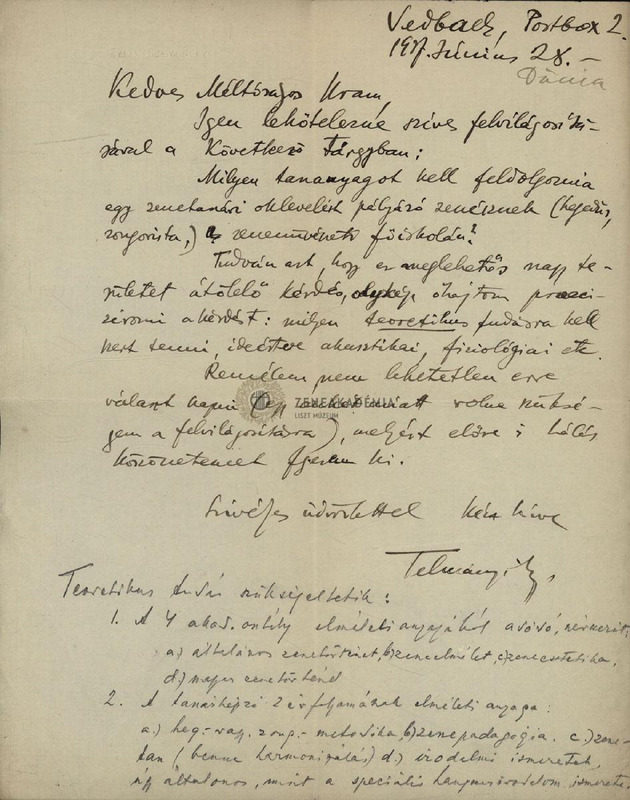 Vedbaek, Postbox 2.
1917. Június 28. –
Dánia
Kedves Méltóságos Uram,
Igen lekötelezne szives felvilágosítá-
sával a következő tárgyban:
Milyen tananyagot kell feldolgoznia
egy zenetanári oklevelért pályázó zenésznek (hegedűs,
zongorista,) a zeneművészeti főiskolán?
Tudván azt, hogy ez meglehetős nagy te-
rületet átölelő kérdés, óhajtom preci-
zirozni a kérdést: milyen teoretikus tudásra kell
szert tenni, ideértve akusztikai, fiziológiai etc.
Remélem, nem lehetetlen erre
választ kapni volna szüksé-
gem a felvilágosításra), melyért előre is hálás
köszönetemet fejezem ki.
ZENEAKADÉMIA
LISZT MÚZEUM
Szívélyes üdvözlettel kész híve
Telmányi
Teoretikus tudás szükségeltetik:
1. A 4 akad. osztály elméleti anyagából
a.) általános zenetörténet, b.) zeneelmélet, c.) zeneesztetika,
d.) magyar zenetörténet
2. A tanárképző 2 évfolyamának elméleti anyaga:
a.) heg.- vagy zong.- metodika, b.) zenepedagógia. c.) zene-
tan (benne harmonizálás) d.) irodalmi ismeretek,
úgy általános, mint a speciális hangszerirodalom